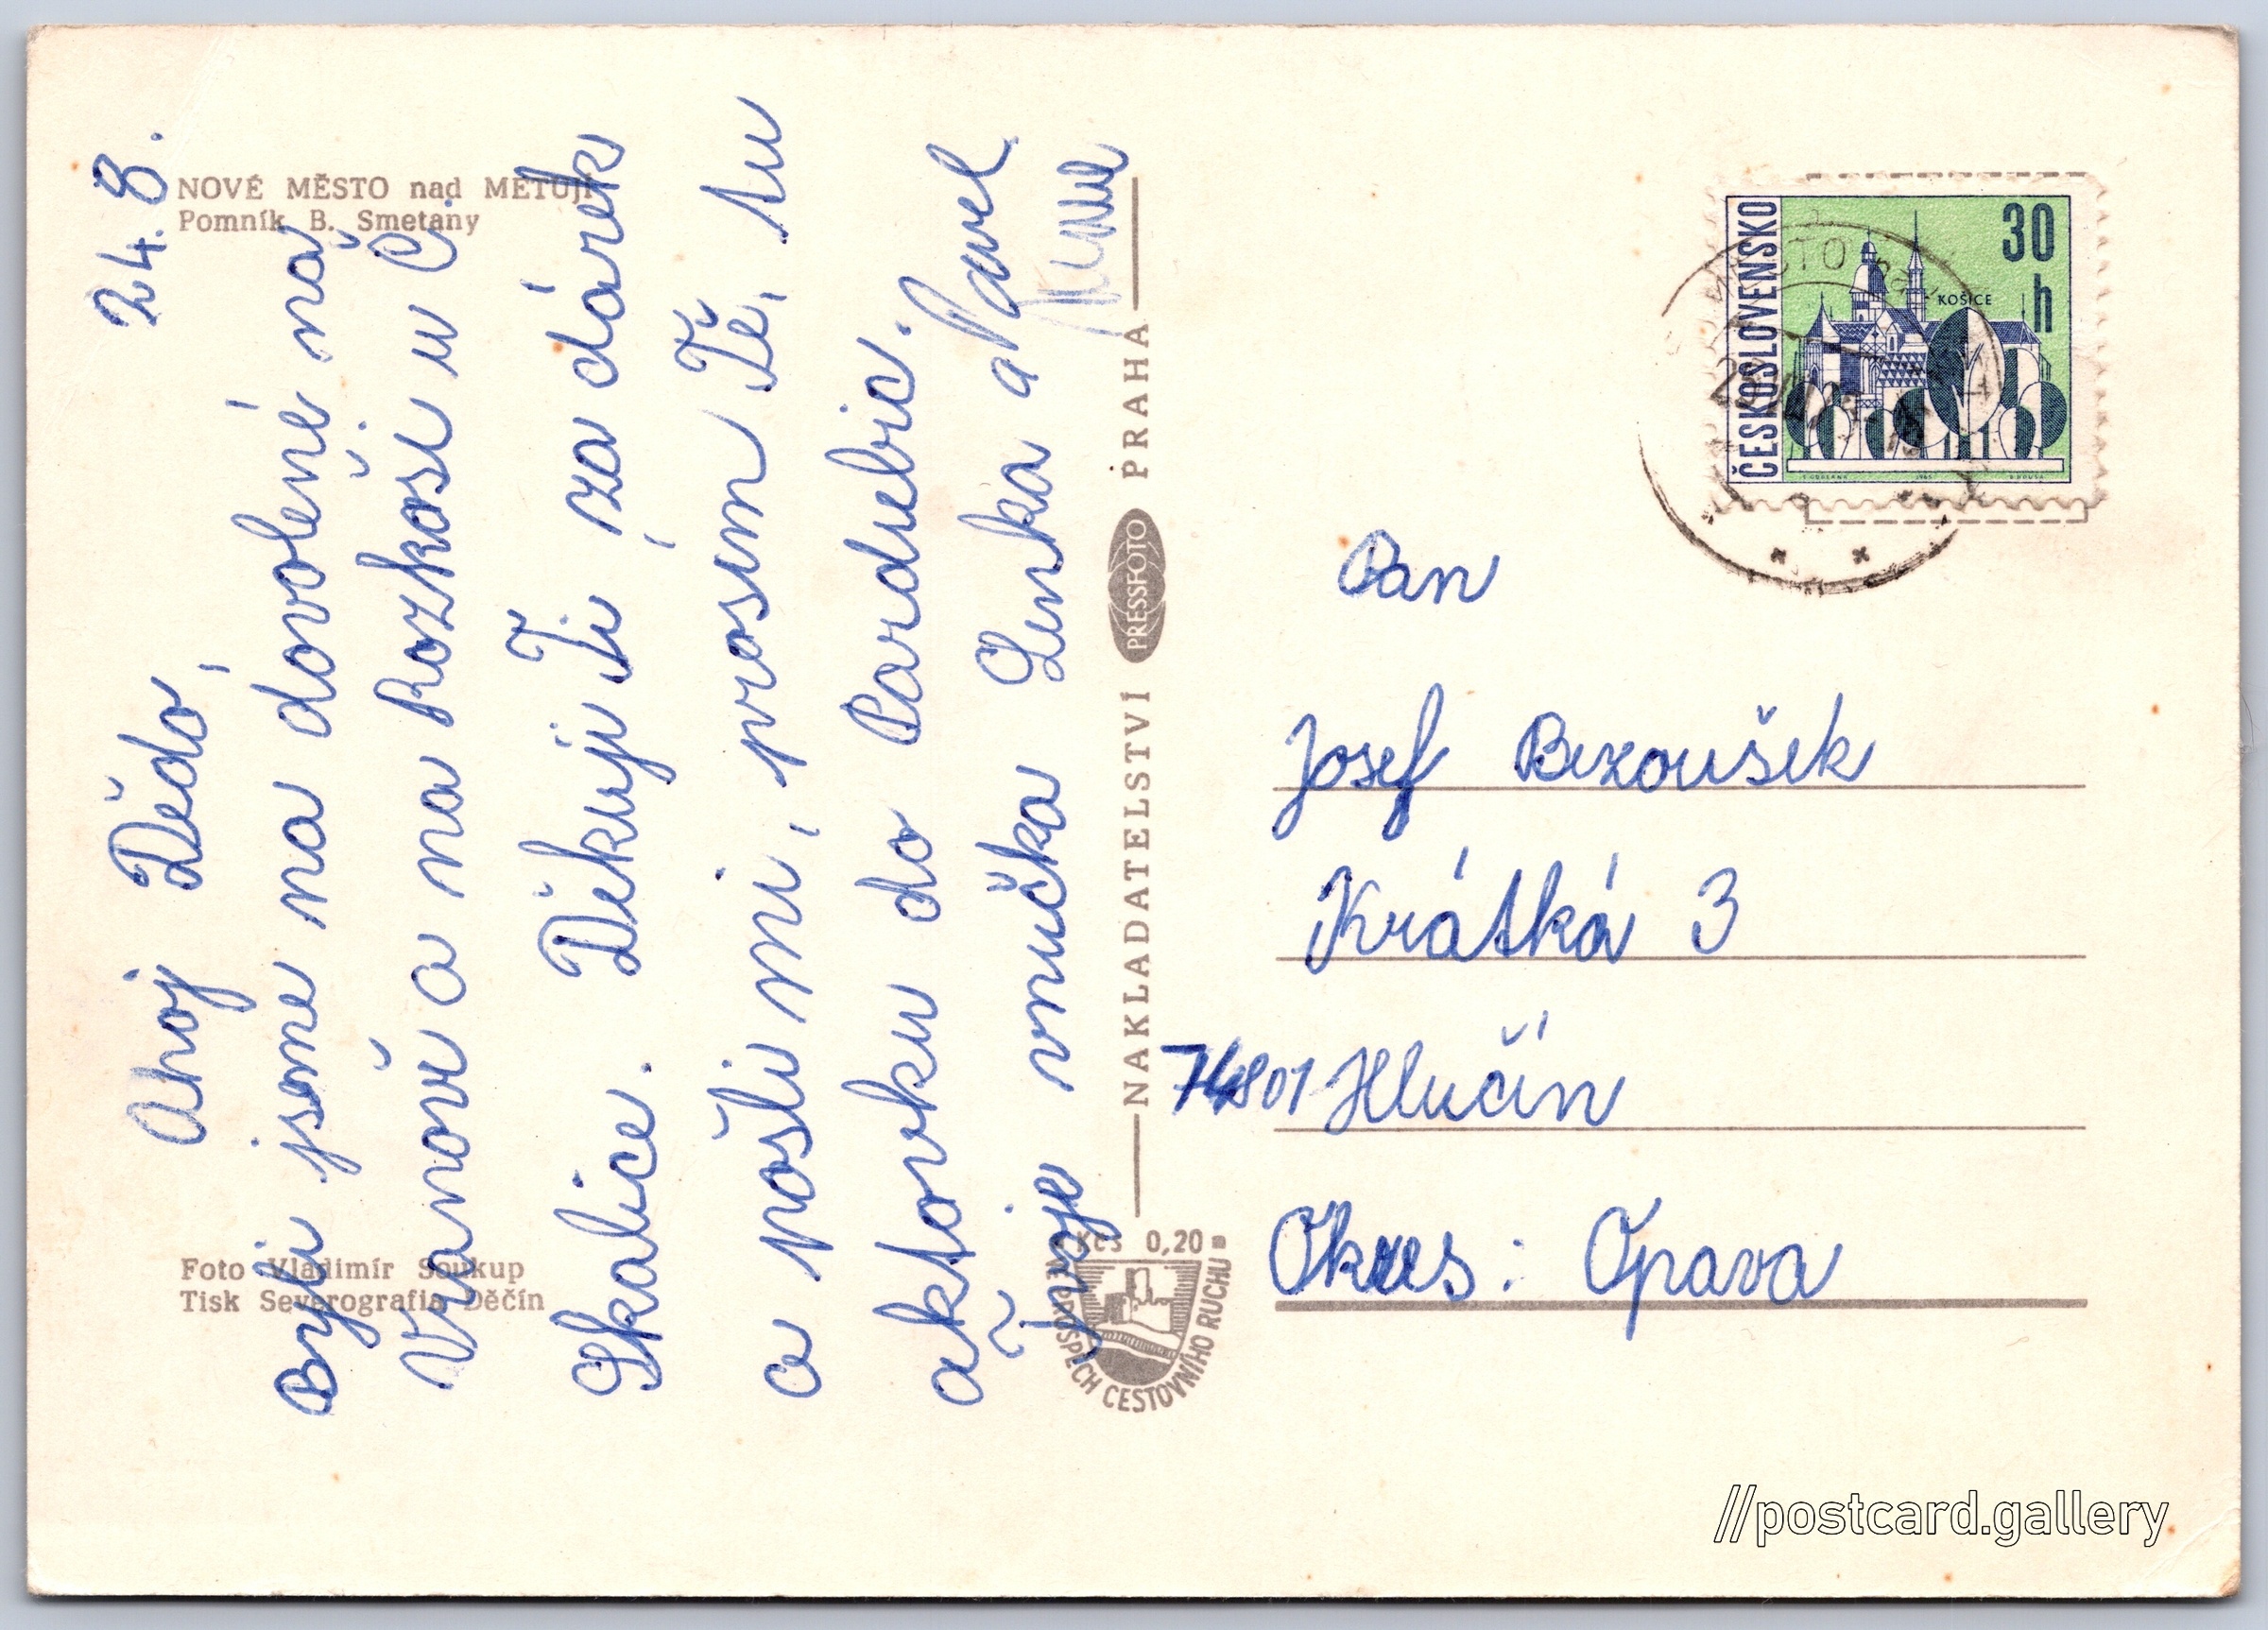 NOVÉ MĚSTO nad METUJÍ
Pomník B. Smetany
24. 8.
Ahoj Dědo,
Byli jsme na dovolené na
Vranově a na Rozkoši u Č.
Skalice. Děkuji Ti za dárek
a pošli mi, prosím Tě, tu
aktovku do Pardubic.
Tvoje vnučka Lenka a Pavel
Foto Vladimír Soukup
Tisk Severografia Děčín
NAKLADATELSTVÍ PRESSFOTO PRAHA
Kčs 0,20
VE PROSPĚCH CESTOVNÍHO RUCHU
ČESKOSLOVENSKO
30 h
KOŠICE
MĚSTO
Pan
Josef Bezoušek
Krátká 3
74801 Hlučín
Okres: Opava
//postcard.gallery